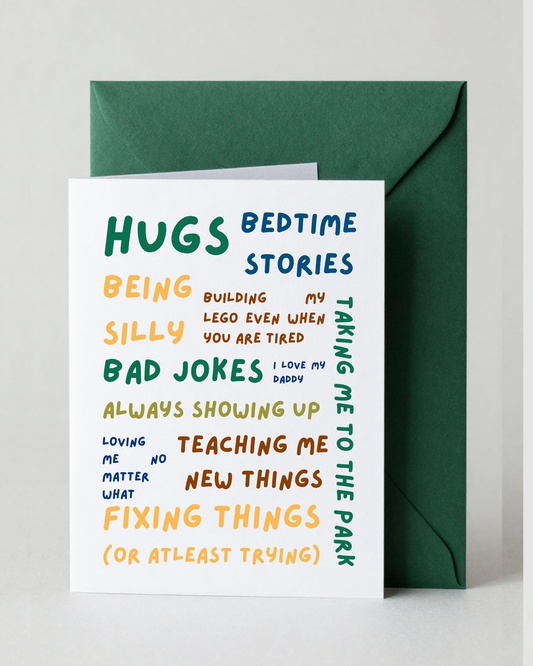 HUGS
BEDTIME
STORIES
BEING
SILLY
BUILDING MY
LEGO EVEN WHEN
YOU ARE TIRED
BAD JOKES
I LOVE MY
DADDY
ALWAYS SHOWING UP
LOVING
ME NO
MATTER
WHAT
TEACHING ME
NEW THINGS
FIXING THINGS
(OR ATLEAST TRYING)
TAKING ME TO THE PARK